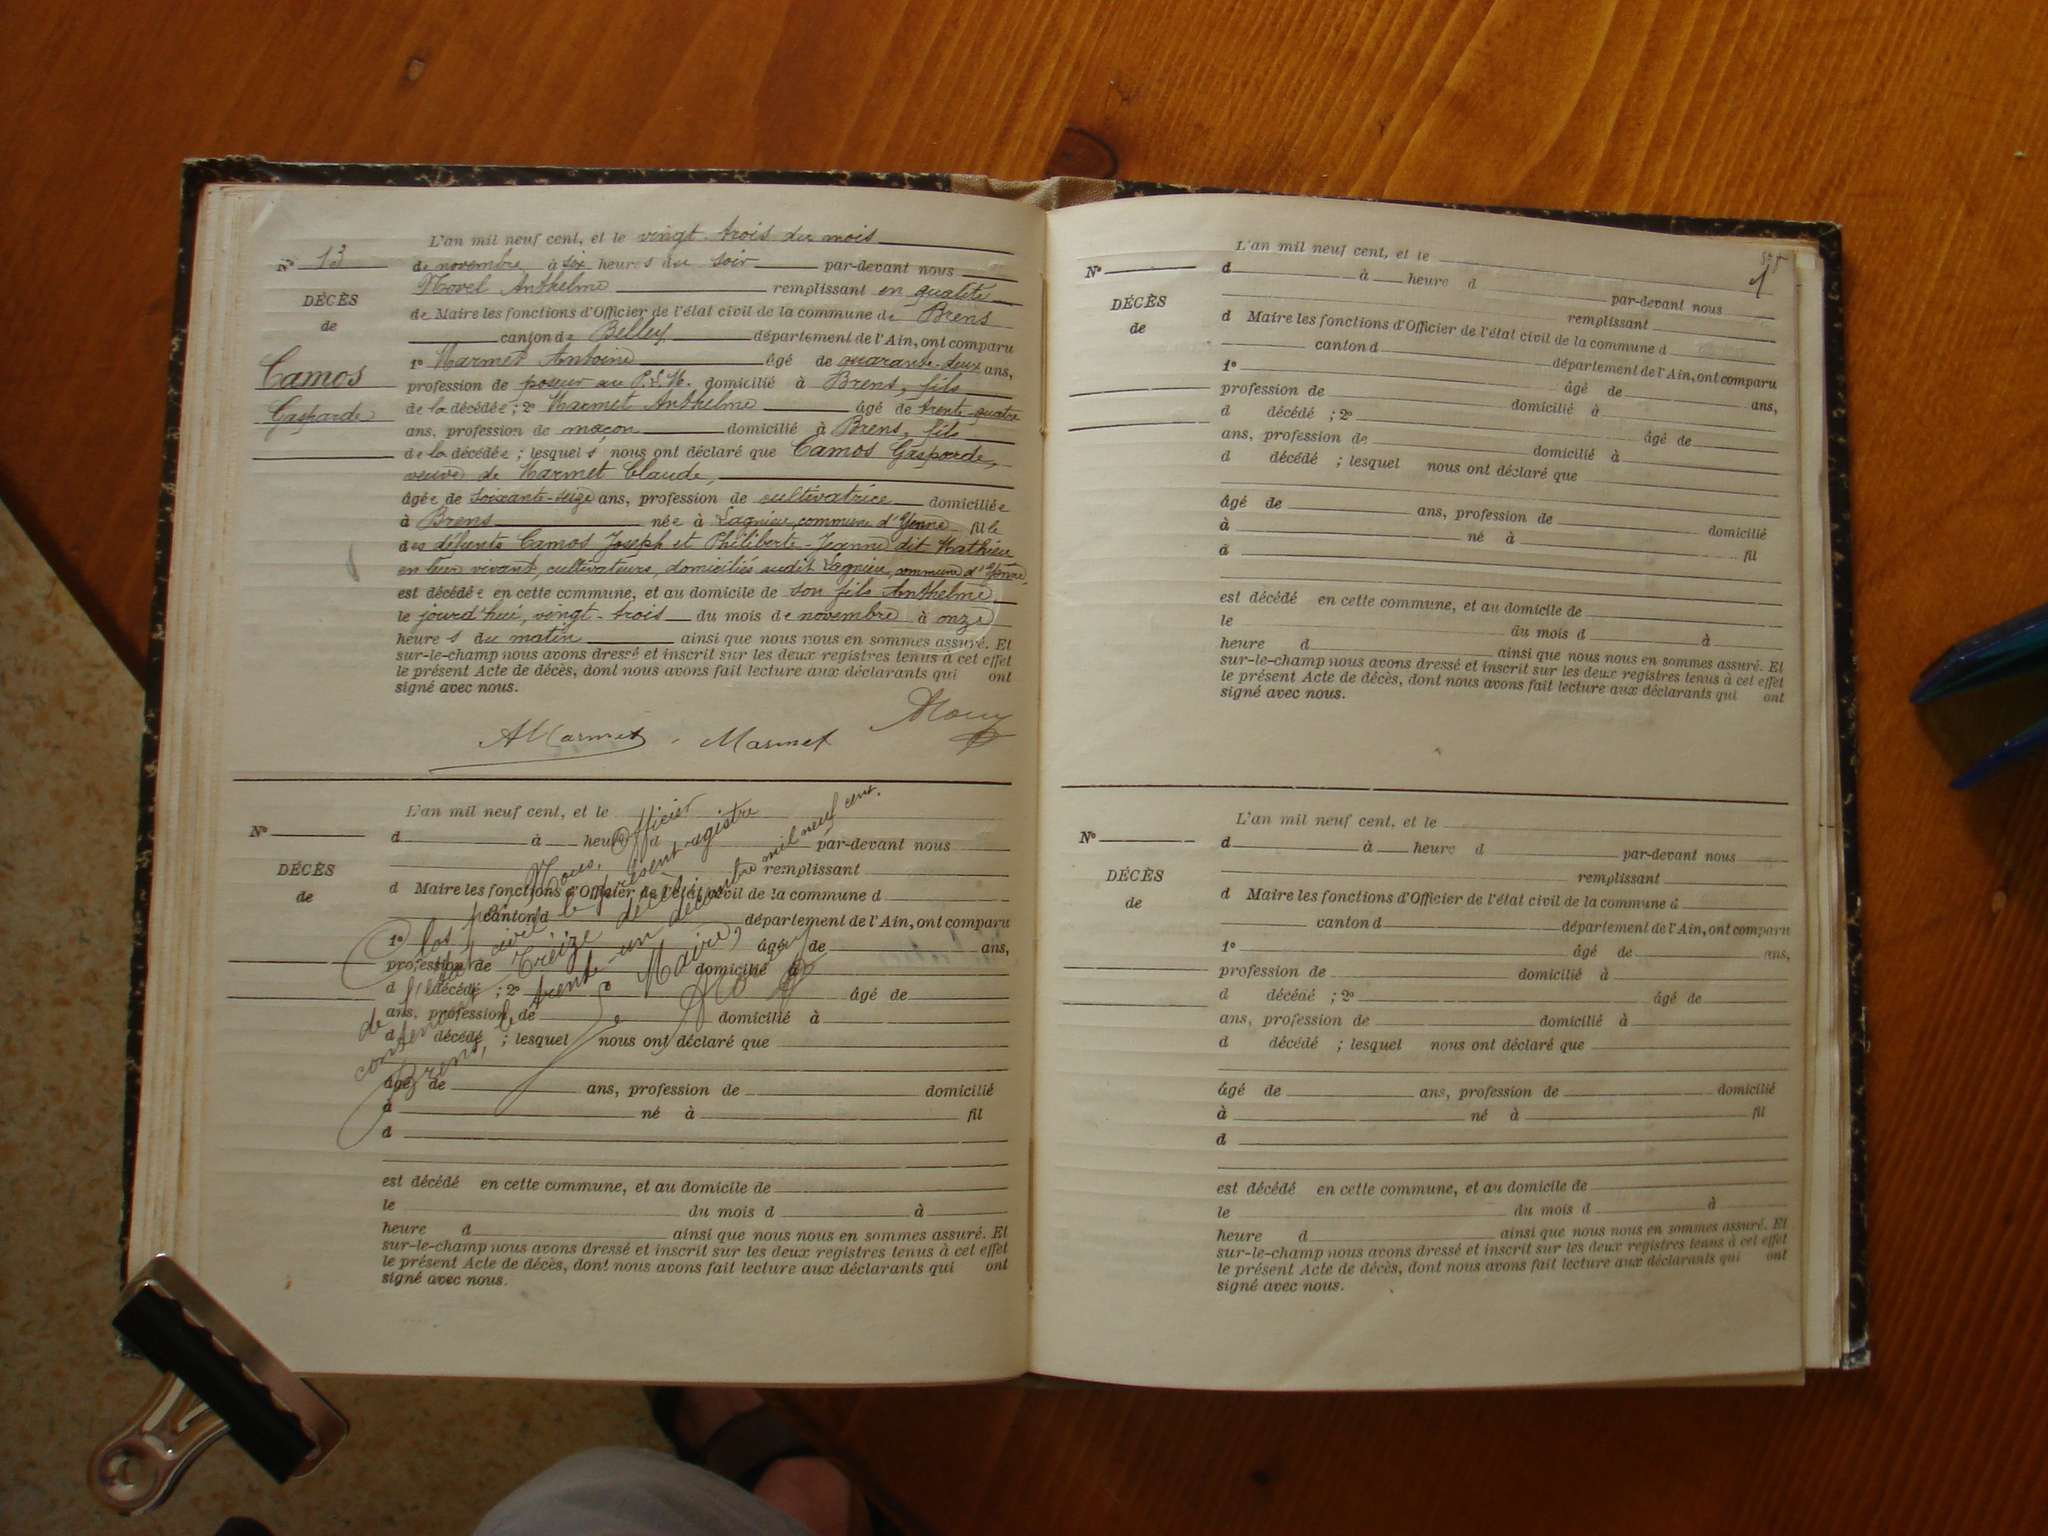 L'an mil neuf cent, et le vingt-trois du mois
N° 13
de novembre à six heures du soir par-devant nous
Morel Anthelme remplissant en qualité
DÉCÈS
de Maire les fonctions d'Officier de l'état civil de la commune de Brens
de
canton de Belley département de l'Ain, ont comparu
Camos
1° Marmet Antoine âgé de quarante-deux ans,
profession de poseur au P.L.M. domicilié à Brens, fils
Gasparde
de la décédée ; 2° Marmet Anthelme âgé de trente-quatre
ans, profession de maçon domicilié à Brens, fils
de la décédée ; lesquels nous ont déclaré que Camos Gasparde,
veuve de Marmet Claude,
âgée de soixante-seize ans, profession de cultivatrice domiciliée
à Brens née à Lagnieu, commune d'Yenne fille
des défunts Camos Joseph et Philiberte-Jeanne dit Mathieu
en leur vivant, cultivateurs, domiciliés sudit Lagnieu, commune d'Yenne,
est décédée en cette commune, et au domicile de son fils Anthelme
le jourd'hui, vingt-trois du mois de novembre à onze
heures du matin ainsi que nous nous en sommes assuré. Et
sur-le-champ nous avons dressé et inscrit sur les deux registres tenus à cet effet
le présent Acte de décès, dont nous avons fait lecture aux déclarants qui ont
signé avec nous.
AMarmet Marmet
L'an mil neuf cent, et le
N°
d à heure d par-devant nous
remplissant
DÉCÈS
d Maire les fonctions d'Officier de l'état civil de la commune d
de
canton d département de l'Ain, ont comparu
1° âgé de ans,
profession de domicilié à
d décédé ; 2° âgé de
ans, profession de domicilié à
d décédé ; lesquel nous ont déclaré que
âgé de ans, profession de domicilié
à né à fil
d
est décédé en cette commune, et au domicile de
le du mois d à
heure d ainsi que nous nous en sommes assuré. Et
sur-le-champ nous avons dressé et inscrit sur les deux registres tenus à cet effet
le présent Acte de décès, dont nous avons fait lecture aux déclarants qui ont
signé avec nous.
Clos par Nous, Officier
de l'état civil le présent registre
contenant treize décès
Brens, le trente-un décembre mil neuf cent.
Le Maire,
L'an mil neuf cent, et le
N°
d à heure d par-devant nous
remplissant
DÉCÈS
d Maire les fonctions d'Officier de l'état civil de la commune d
de
canton d département de l'Ain, ont comparu
1° âgé de ans,
profession de domicilié à
d décédé ; 2° âgé de
ans, profession de domicilié à
d décédé ; lesquel nous ont déclaré que
âgé de ans, profession de domicilié
à né à fil
d
est décédé en cette commune, et au domicile de
le du mois d à
heure d ainsi que nous nous en sommes assuré. Et
sur-le-champ nous avons dressé et inscrit sur les deux registres tenus à cet effet
le présent Acte de décès, dont nous avons fait lecture aux déclarants qui ont
signé avec nous.
L'an mil neuf cent, et le
N°
d à heure d par-devant nous
remplissant
DÉCÈS
d Maire les fonctions d'Officier de l'état civil de la commune d
de
canton d département de l'Ain, ont comparu
1° âgé de ans,
profession de domicilié à
d décédé ; 2° âgé de
ans, profession de domicilié à
d décédé ; lesquel nous ont déclaré que
âgé de ans, profession de domicilié
à né à fil
d
est décédé en cette commune, et au domicile de
le du mois d à
heure d ainsi que nous nous en sommes assuré. Et
sur-le-champ nous avons dressé et inscrit sur les deux registres tenus à cet effet
le présent Acte de décès, dont nous avons fait lecture aux déclarants qui ont
signé avec nous.